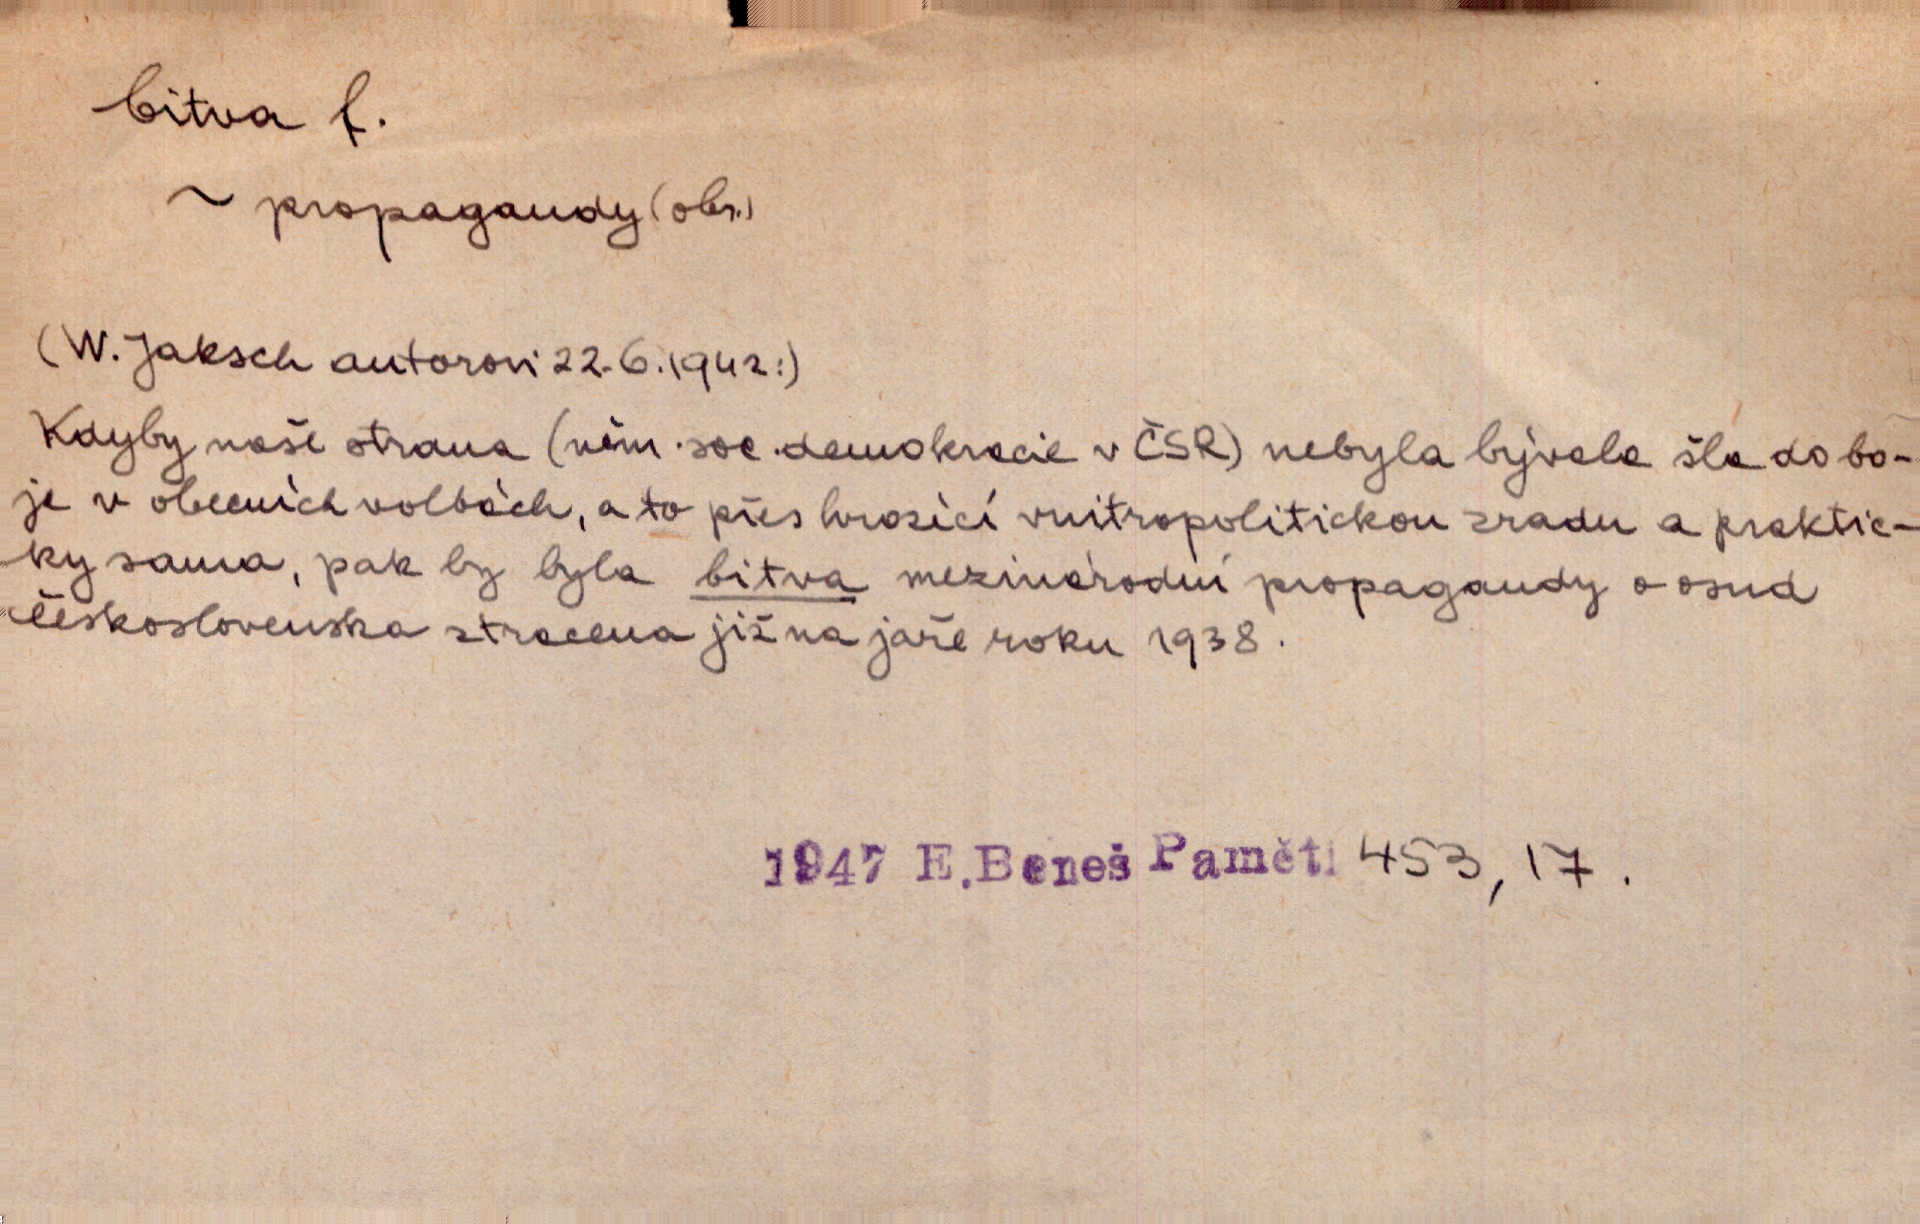 bitva f.
~ propagandy (obr.)
(W. Jaksch autorovi 22.6.1942:)
Kdyby naše strana (něm. soc. demokracie v ČSR) nebyla bývala šla do bo-
je v obecních volbách, a to přes hrozící vnitropolitickou zradu a praktic-
ky sama, pak by byla bitva mezinárodní propagandy o osud
Československa ztracena již na jaře roku 1938.
1947 E. Beneš Paměti 453, 17.